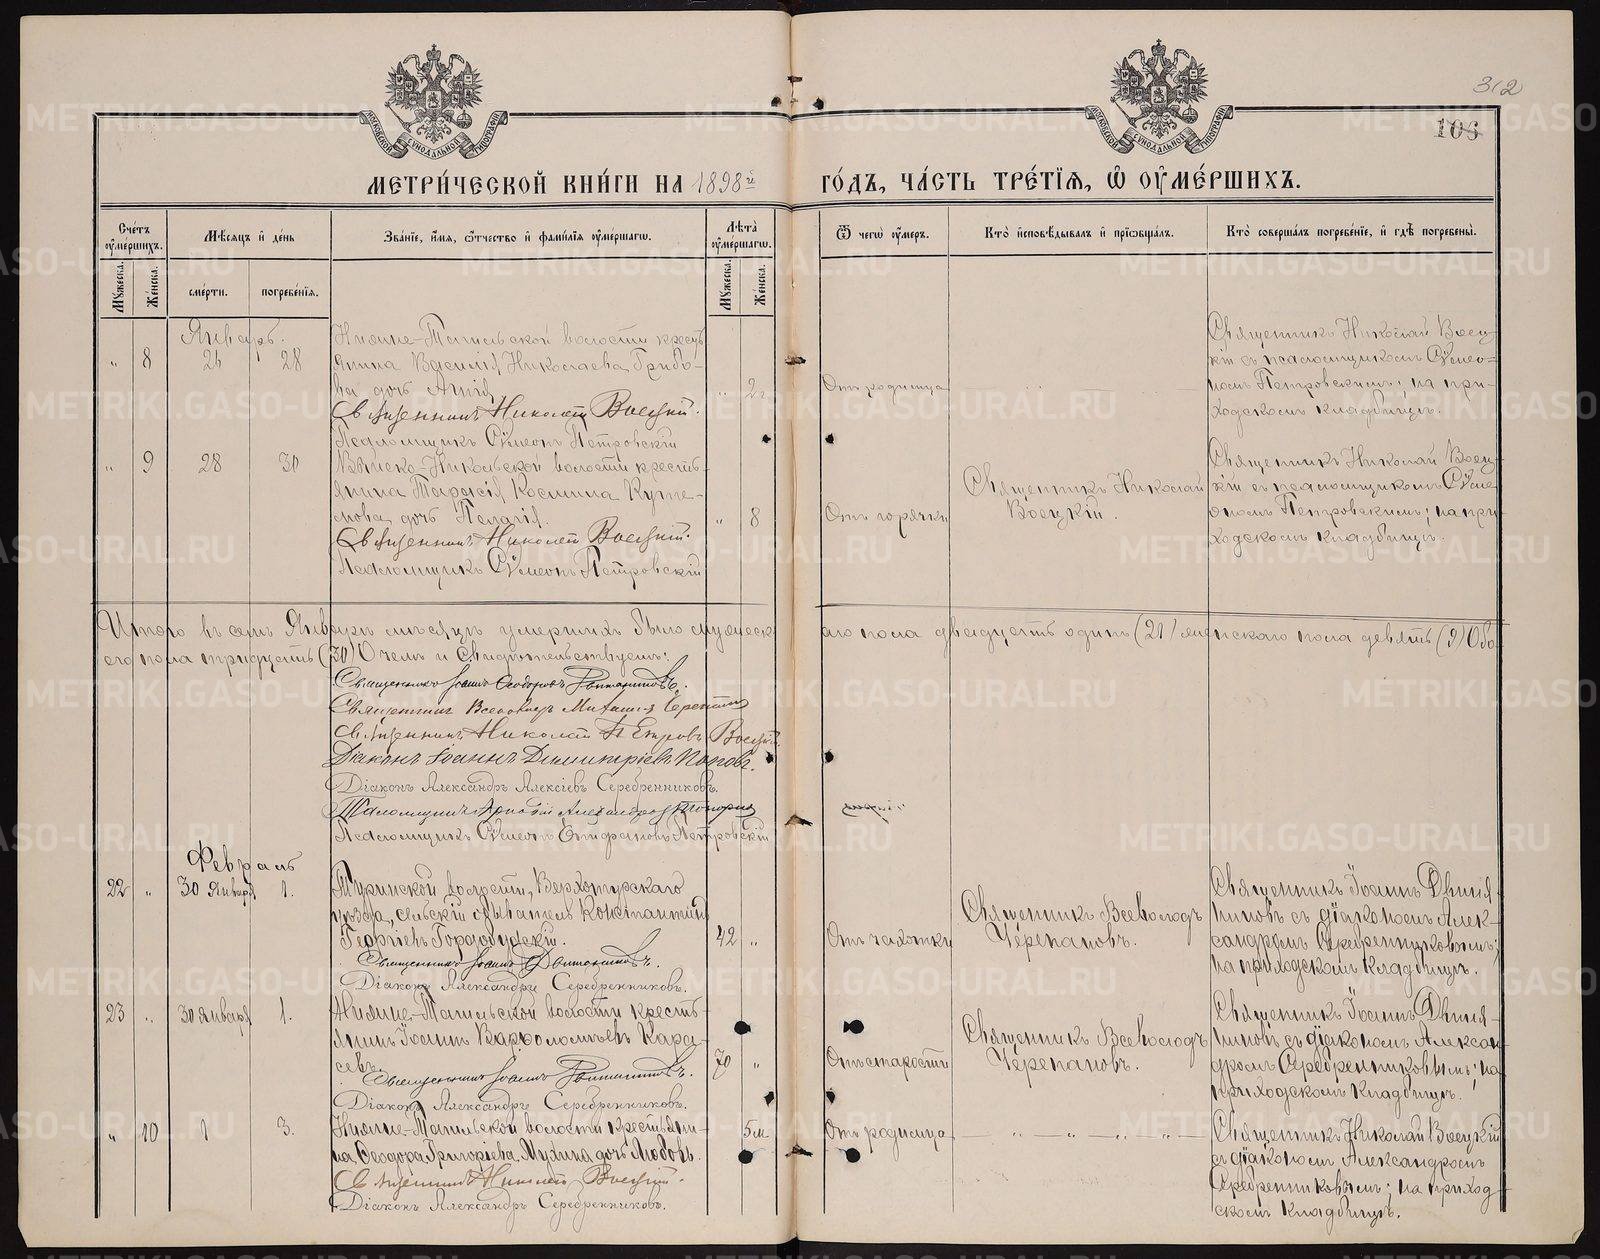 312
106
МОСКОВСКОЙ СѴНОДАЛЬНОЙ ТИПОГРАФІИ
МОСКОВСКОЙ СѴНОДАЛЬНОЙ ТИПОГРАФІИ
МЕТРИ́ЧЕСКОЙ КНИ́ГИ НА 1898й ГО́ДЪ, ЧА́СТЬ ТРЕ́ТІѦ, Ѡ҆ ОУ҆МЕ́РШИХЪ.
Сче́тъ оу҆ме́ршихъ.
Мѣ́сѧцъ и҆ де́нь
Зва́нїе, и҆́мѧ, ѻ҆́тчество и҆ фами́лїѧ оу҆ме́ршагѡ.
Лѣ́та оу҆ме́ршагѡ.
Ѿ чегѡ̀ оу҆́меръ.
Кто̀ и҆сповѣ́дывалъ и҆ прїѡбща́лъ.
Кто̀ соверша́лъ погребе́нїе, и҆ гдѣ̀ погребены̀.
Мꙋ́жеска. Же́нска. сме́рти. погребе́нїѧ. Мꙋ́жеска. Же́нска.
Январь.
" 8 26 28
Нижне-Тагильской волости кресть
янина Василія Николаева Грибо-
ва дочь Анна
Священникъ Николай Воецкій.
Псаломщикъ Сѵмеонъ Петровскій
" 2
Отъ родимца
Священникъ Николай Воец-
кій съ псаломщикомъ Сѵмео-
номъ Петровскимъ; на при-
ходскомъ кладбищѣ.
" 9 28 30
Выйско-Никольской волости кресть-
янина Тарасія Космина Кузне-
цова дочь Пелагія.
Священникъ Николай Воецкій.
Псаломщикъ Сѵмеонъ Петровскій
" 8
Отъ горячки
Священникъ Николай
Воецкій.
Священникъ Николай Воец-
кій съ псаломщикомъ Сѵме
ономъ Петровскимъ; на при-
ходскомъ кладбищѣ.
Итого въ семъ Январѣ мѣсяцѣ умершихъ было мужеск
аго пола двадцать одинъ (21) женскаго пола девять (9) Обо-
его пола тридцать (30) О чемъ и Свидѣтельствуемъ:
Священникъ Іоаннъ Ѳеодоровъ
Священникъ Всеволодъ Михаиловъ Черепановъ
Священникъ Николай Петровъ Воецкій
Діаконъ Іоаннъ Димитріевъ Поповъ.
Діаконъ Александръ Алексіевъ Серебренниковъ.
Псаломщикъ Александровъ
Псаломщикъ Сѵмеонъ Епифановъ Петровскій
Февраль
22 " 30 Января 1.
Туринской волости, Верхотурскаго
уѣзда, сельскій обыватель Константинъ
Георгіевъ
Священникъ Іоаннъ
Діаконъ Александръ Серебренниковъ.
42 "
Отъ чахотки
Священникъ Всеволодъ
Черепановъ.
Священникъ Іоаннъ
съ діакономъ Алек-
сандромъ Серебренниковымъ;
на приходскомъ кладбищѣ.
23 " 30 Января 1.
Нижне-Тагильской волости кресть-
янинъ Іоаннъ Варѳоломѣевъ Кара-
севъ.
Священникъ Іоаннъ
Діаконъ Александръ Серебренниковъ.
70 "
Отъ старости
Священникъ Всеволодъ
Черепановъ.
Священникъ Іоаннъ
съ діакономъ Алексан-
дромъ Серебренниковымъ; на
приходскомъ кладбищѣ.
" 10 1 3.
Нижне-Тагильской волости крестьяни-
на Ѳеодора Григоріева Мухина дочь Любовь.
Священникъ Николай Воецкій.
Діаконъ Александръ Серебренниковъ.
5 м
Отъ родимца
Священникъ Николай Воецкій
съ діакономъ Александромъ
Серебренниковымъ; на приход-
скомъ кладбищѣ.
METRIKI.GASO-URAL.RU